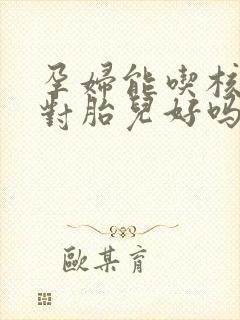 孕婦能喫核
對胎兒好嗎
歐某育